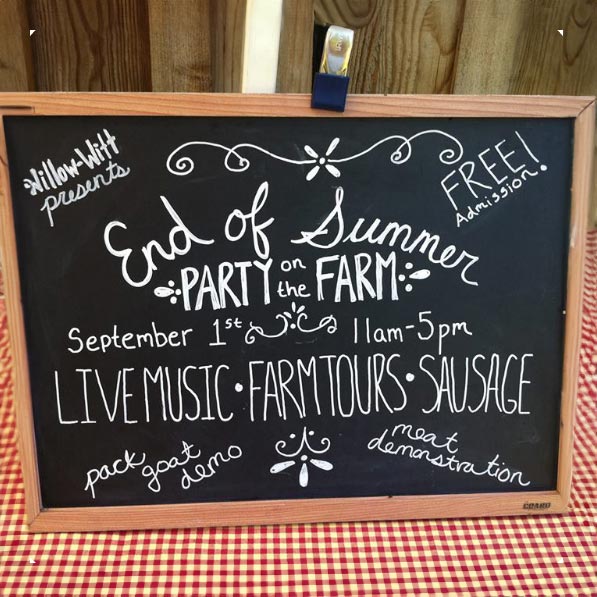 Willow-Witt
presents
FREE!
Admission
End of Summer
PARTY on the FARM
September 1st 11am-5pm
LIVE MUSIC • FARM TOURS • SAUSAGE
pack goat demo
meat demonstration